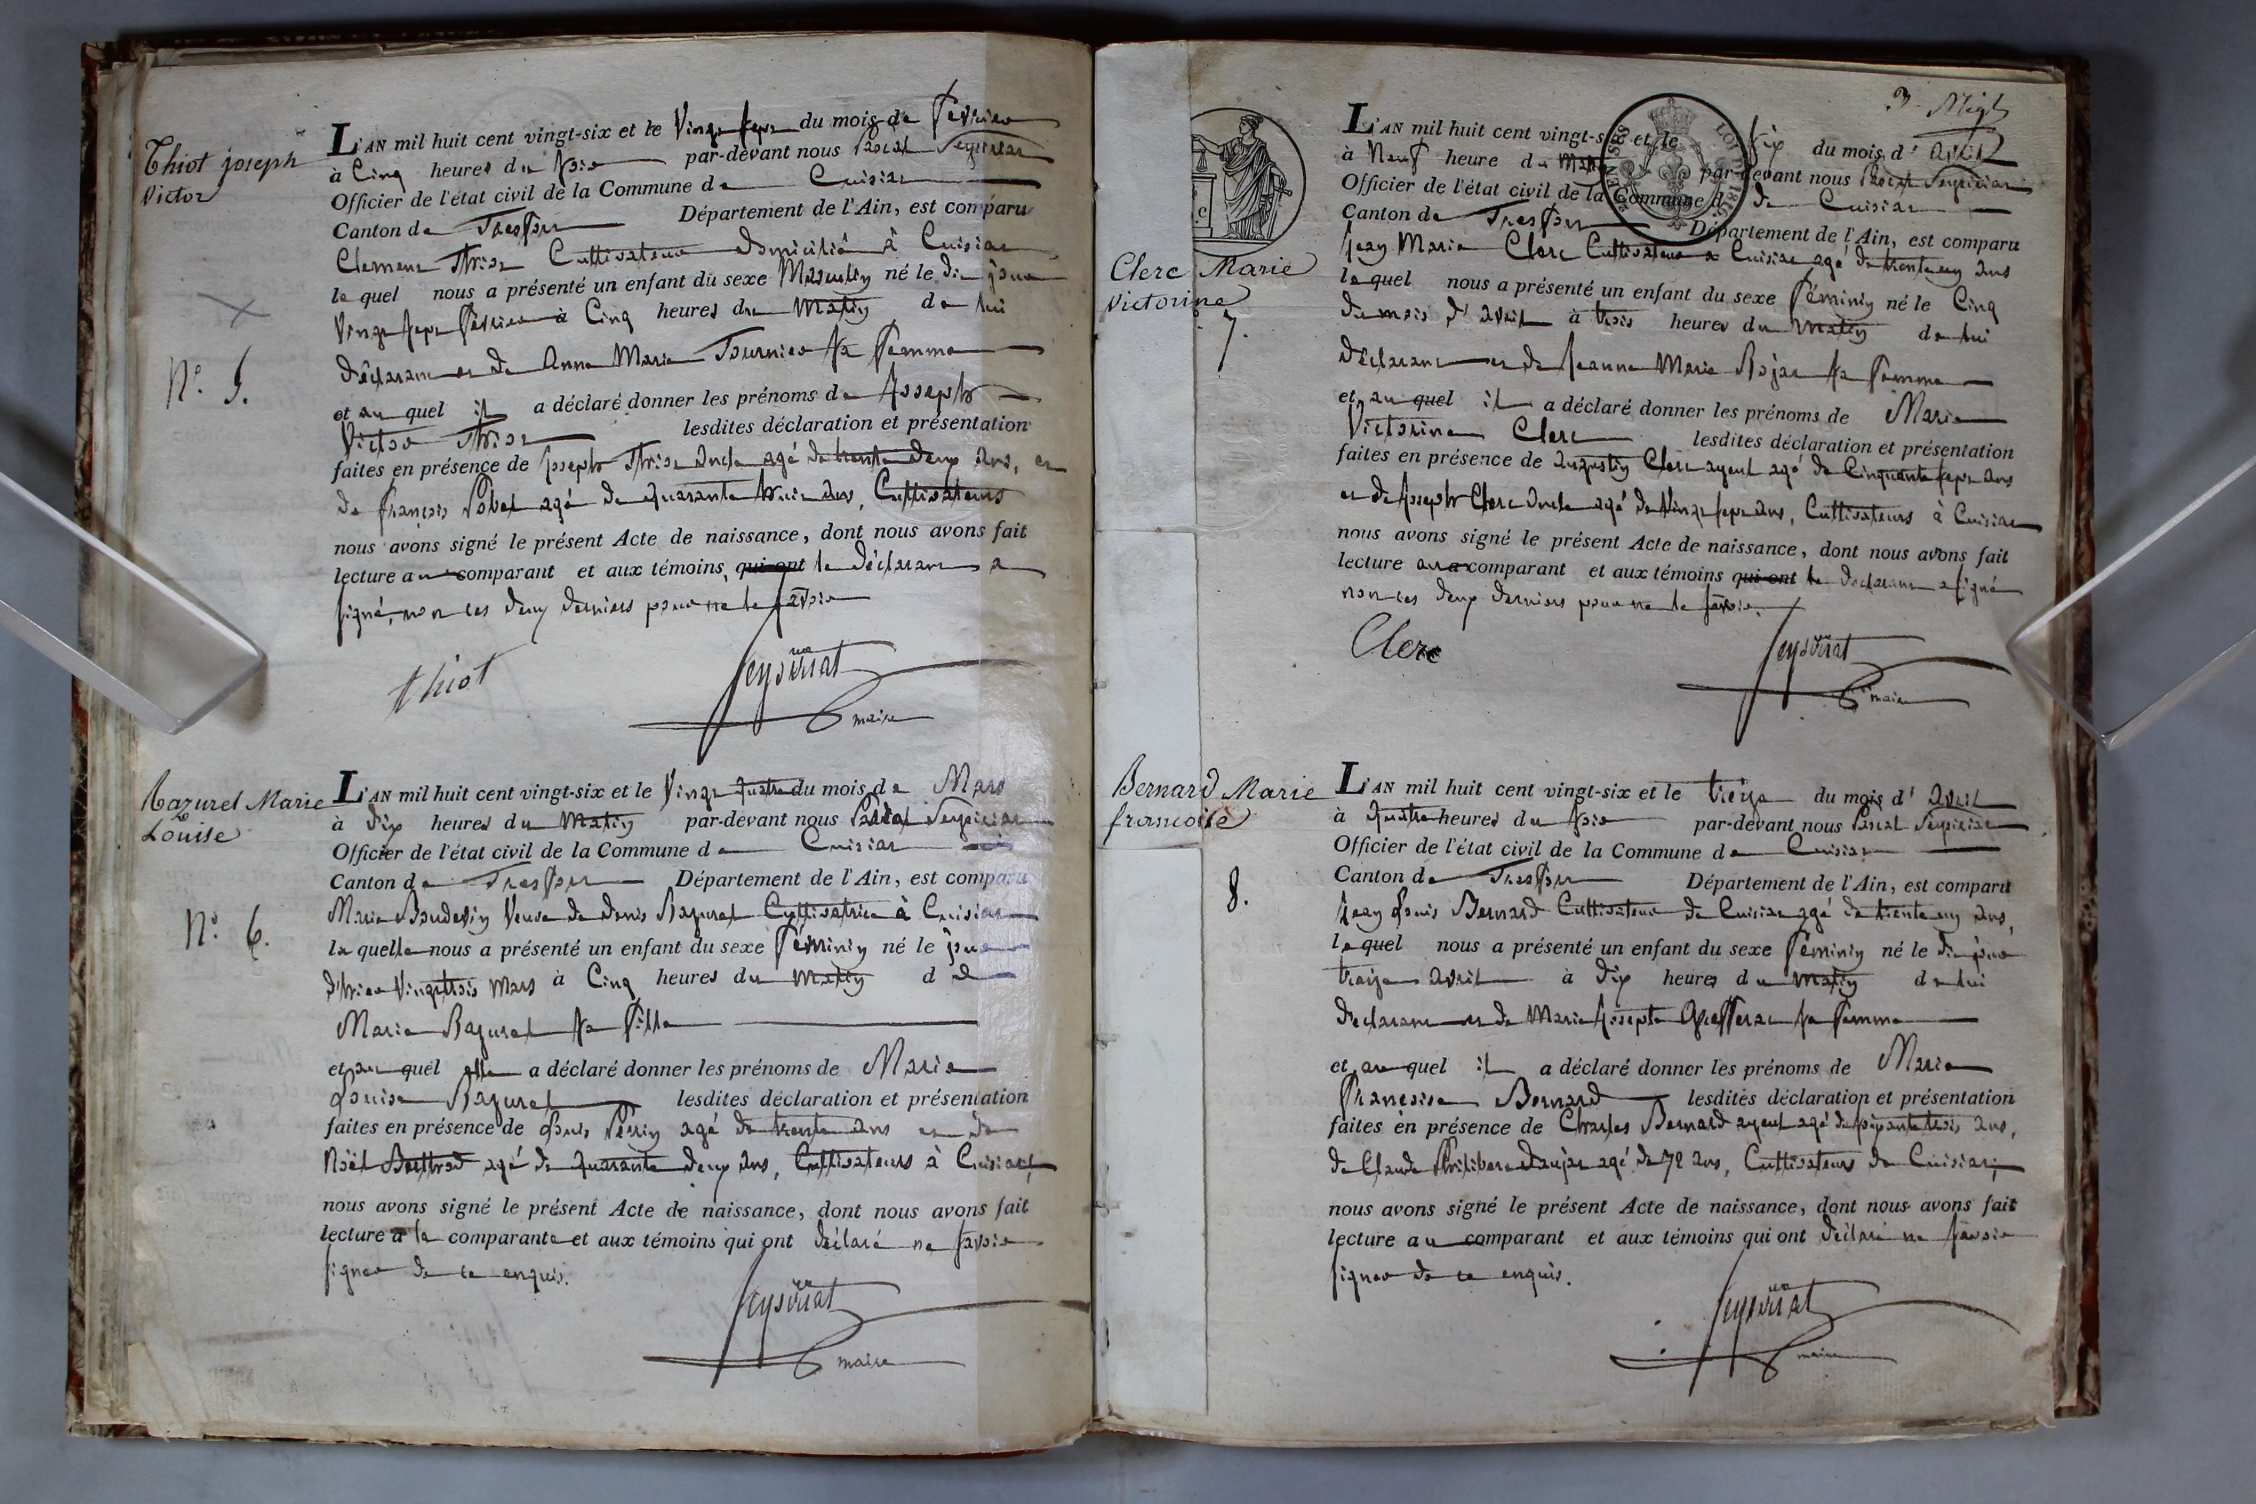 Thiot joseph
Victor
N.º 5.
L'AN mil huit cent vingt-six et le Vingt sept du mois de février
à Cinq heures du soir par-devant nous Pascal Seysiriat
Officier de l'état civil de la Commune de Cuisiat
Canton de Treffort Département de l'Ain, est comparu
Clement Thiot Cultivateur domicilié à Cuisiat
lequel nous a présenté un enfant du sexe Masculin né le dit jour
Vingt sept février à Cinq heures du Matin de lui
déclarant et de Anne Marie Tournier sa femme
et auquel il a déclaré donner les prénoms de Joseph
Victor Thiot lesdites déclaration et présentation
faites en présence de Joseph Thiot oncle agé de trente deux ans, et
de françois Pobel agé de quarante huit ans, Cultivateurs
nous avons signé le présent Acte de naissance, dont nous avons fait
lecture au comparant et aux témoins, qui ont le déclarant a
signé, non les deux derniers pour ne le savoir
thiot
Seysiriat
maire
Razurel Marie
Louise
N.º 6.
L'AN mil huit cent vingt-six et le Vingt quatre du mois de Mars
à dix heures du Matin par-devant nous Pascal Seysiriat
Officier de l'état civil de la Commune de Cuisiat
Canton de Treffort Département de l'Ain, est comparu
Marie Boudevin Veuve de denis Razurel Cultivatrice à Cuisiat
laquelle nous a présenté un enfant du sexe féminin né le jour
d'hier Vingt trois Mars à Cinq heures du Matin d e
Marie Razurel sa fille
et auquel elle a déclaré donner les prénoms de Marie
Louise Razurel lesdites déclaration et présentation
faites en présence de Louis Perrin agé de trente ans et de
Noël Berthod agé de quarante deux ans, Cultivateurs à Cuisiat
nous avons signé le présent Acte de naissance, dont nous avons fait
lecture à la comparante et aux témoins qui ont déclaré ne savoir
signer de ce enquis.
Seysiriat
maire
3
LOI DE 1816
Clerc Marie
Victorine
7.
L'AN mil huit cent vingt-six et le six du mois d'avril
à Neuf heure du Matin par-devant nous Pascal Seysiriat
Officier de l'état civil de la Commune d de Cuisiat
Canton de Treffort Département de l'Ain, est comparu
Jean Marie Clerc Cultivateur à Cuisiat agé de trente un ans
lequel nous a présenté un enfant du sexe féminin né le Cinq
du mois d'avril à trois heures du Matin de lui
déclarant et de Jeanne Marie Rojat sa femme
et au quel il a déclaré donner les prénoms de Marie
Victorine Clerc lesdites déclaration et présentation
faites en présence de augustin Clerc ayeul agé de Cinquante sept ans
et de Joseph Clerc oncle agé de Vingt sept ans, Cultivateurs à Cuisiat
nous avons signé le présent Acte de naissance, dont nous avons fait
lecture au comparant et aux témoins qui ont le déclarant a signé
non les deux derniers pour ne le savoir.
Clerc
Seysiriat
maire
Bernard Marie
francoise
8.
L'AN mil huit cent vingt-six et le treize du mois d'avril
à quatre heures du soir par-devant nous Pascal Seysiriat
Officier de l'état civil de la Commune de Cuisiat
Canton de Treffort Département de l'Ain, est comparu
Jean Louis Bernard Cultivateur de Cuisiat agé de trente un ans,
lequel nous a présenté un enfant du sexe féminin né le dit jour
treize avril à dix heures du Matin de lui
déclarant et de Marie Josepte sa femme
et auquel il a déclaré donner les prénoms de Marie
françoise Bernard lesdites déclaration et présentation
faites en présence de Charles Bernard ayeul agé de soixante trois ans,
de Claude Philibert agé de 72 ans, Cultivateurs de Cuisiat;
nous avons signé le présent Acte de naissance, dont nous avons fait
lecture au comparant et aux témoins qui ont déclaré ne savoir
signer de ce enquis.
Seysiriat
maire